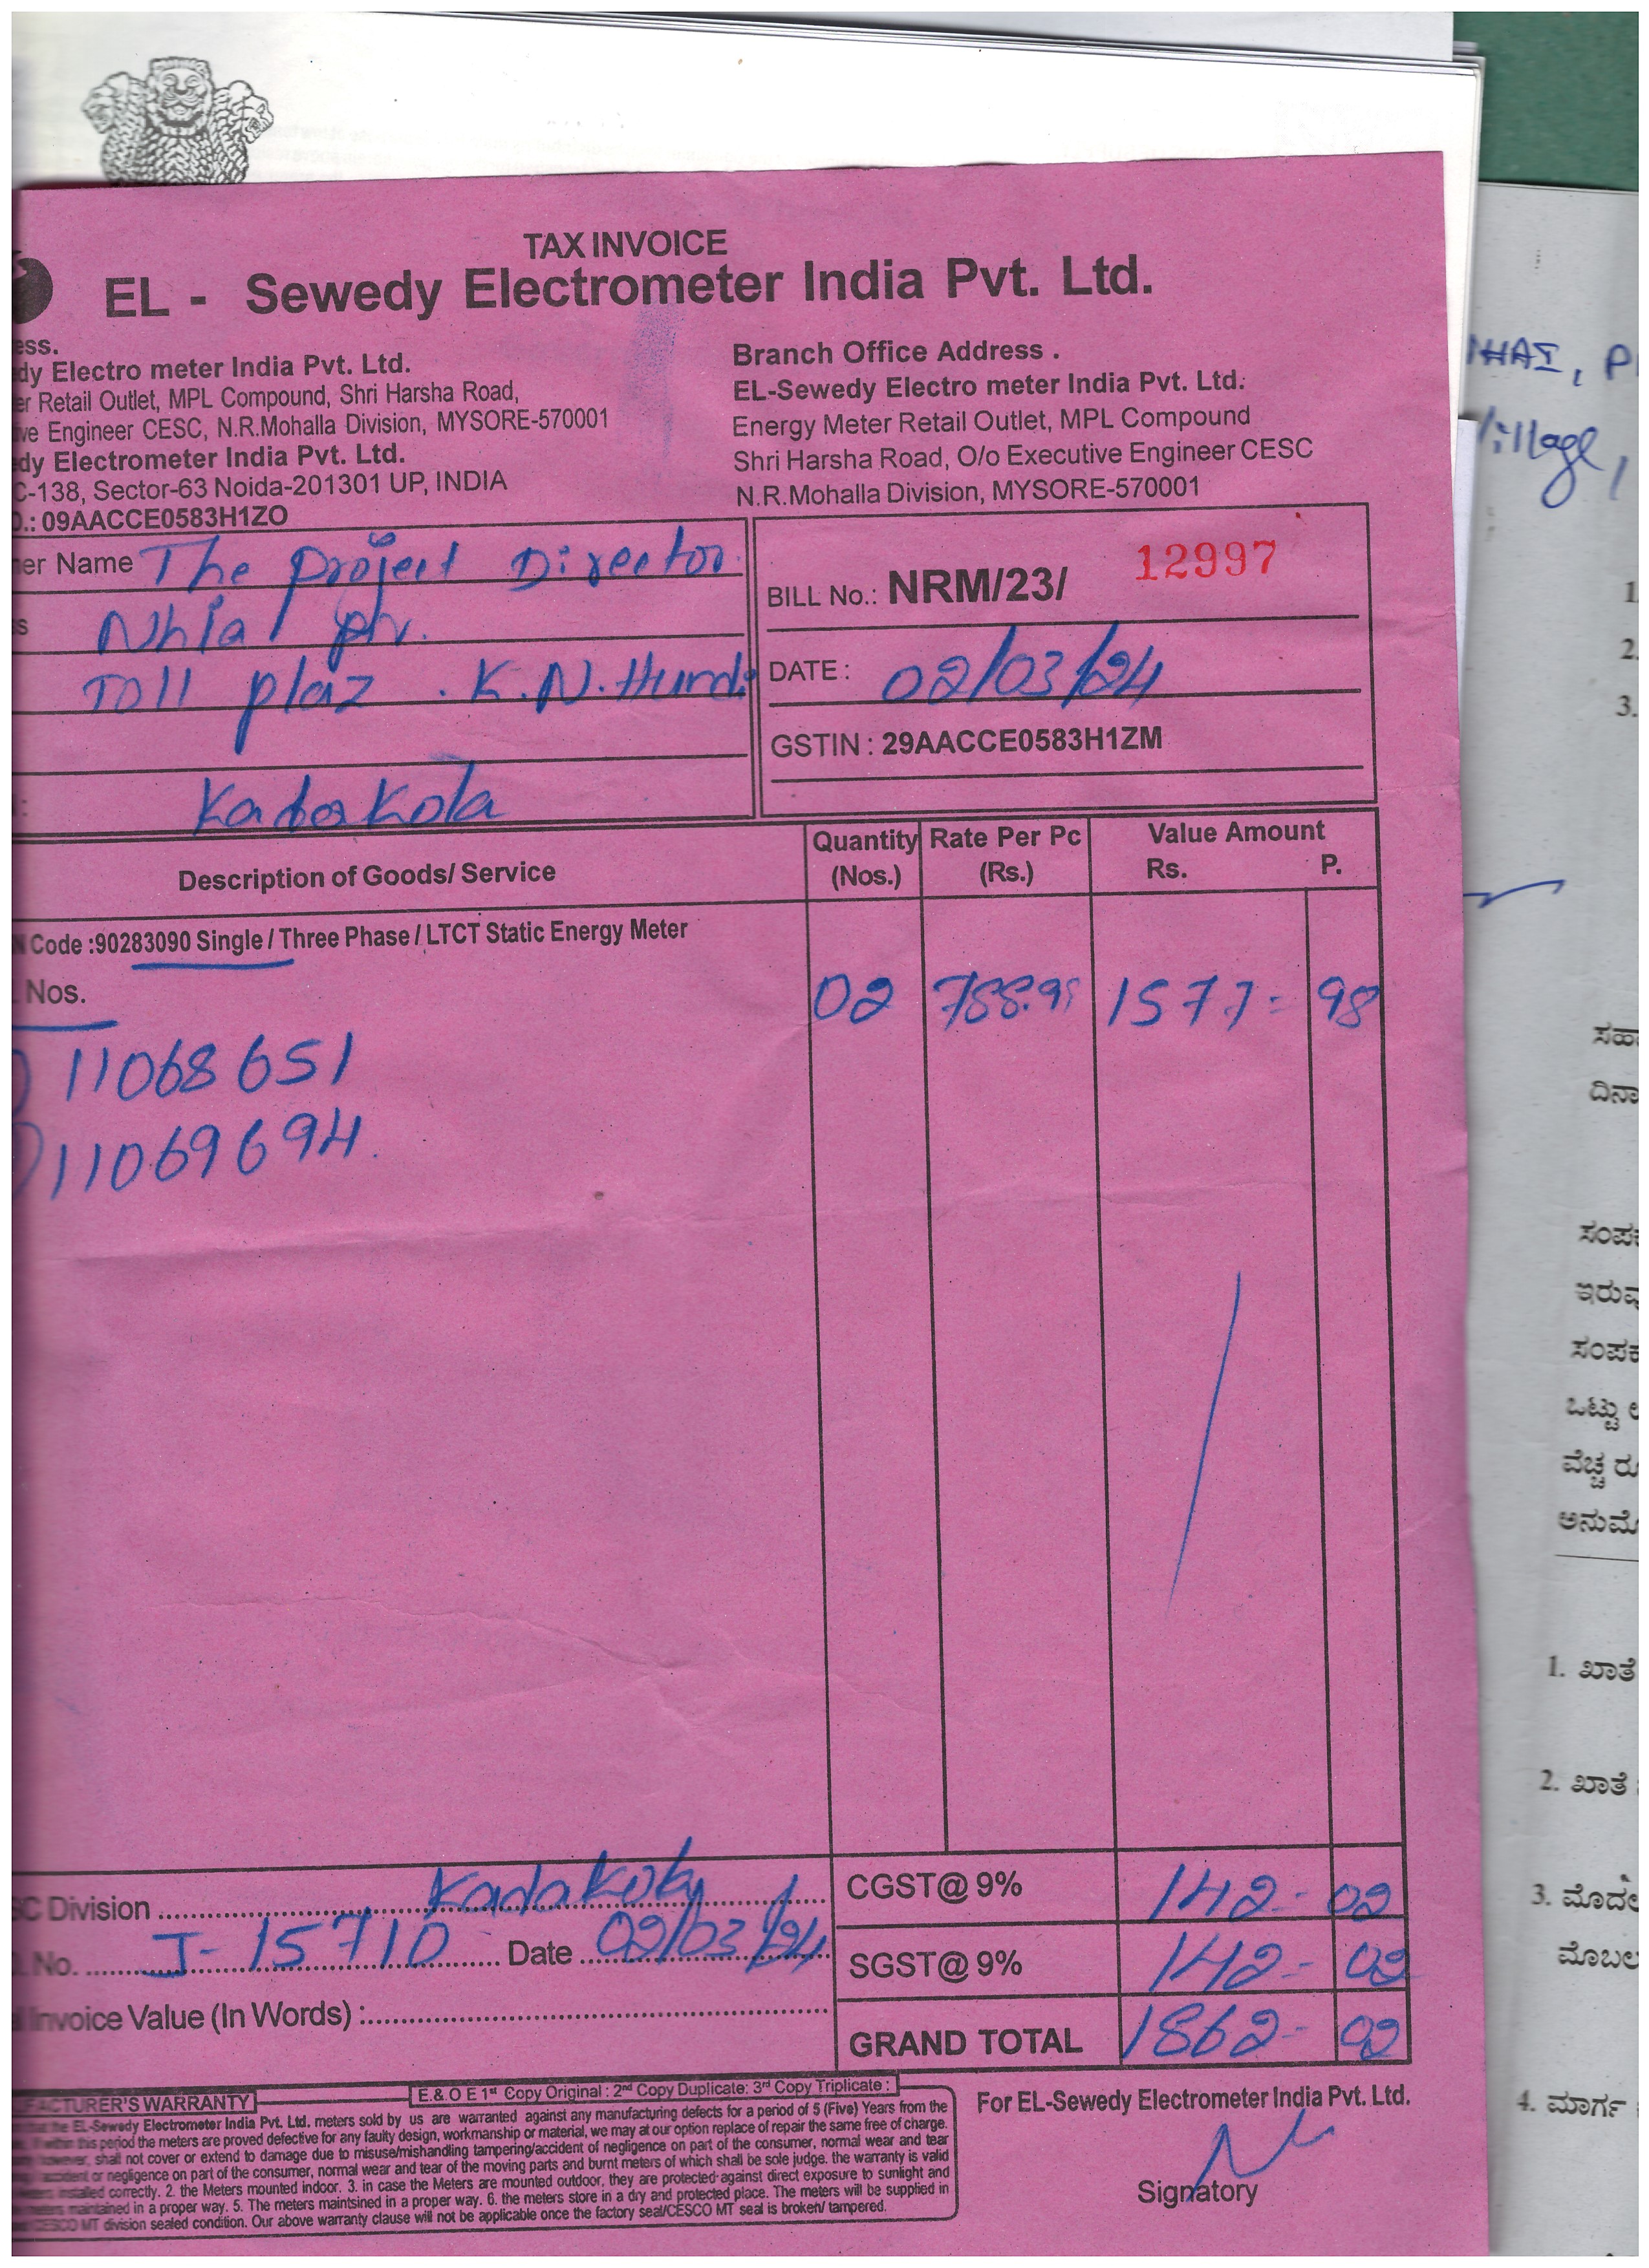 TAX INVOICE
EL - Sewedy Electrometer India Pvt. Ltd.
ess.
dy Electro meter India Pvt. Ltd.
er Retail Outlet, MPL Compound, Shri Harsha Road,
ve Engineer CESC, N.R.Mohalla Division, MYSORE-570001
dy Electrometer India Pvt. Ltd.
C-138, Sector-63 Noida-201301 UP, INDIA
09AACCE0583H1ZO
Branch Office Address .
EL-Sewedy Electro meter India Pvt. Ltd.
Energy Meter Retail Outlet, MPL Compound
Shri Harsha Road, O/o Executive Engineer CESC
N.R.Mohalla Division, MYSORE-570001
er Name The Project Director
s NhIal ph.
Toll plaz . K.N.Hundi
KadaKola
BILL No.: NRM/23/ 12997
DATE : 02/03/24
GSTIN : 29AACCE0583H1ZM
Description of Goods/ Service Quantity (Nos.) Rate Per Pc (Rs.) Value Amount Rs. P.
N Code :90283090 Single / Three Phase / LTCT Static Energy Meter
Nos. 02 788.99 1577 = 98
) 11068651
) 11069694.
C Division KadaKola
No. J- 15710 Date 02/03/24
Invoice Value (In Words) :
CGST@ 9% 142 - 02
SGST@ 9% 142 - 02
GRAND TOTAL 1862 - 02
FACTURER'S WARRANTY
E.& O E 1st Copy Original : 2nd Copy Duplicate: 3rd Copy Triplicate :
EL-Sewedy Electrometer India Pvt. Ltd. meters sold by us are warranted against any manufacturing defects for a period of 5 (Five) Years from the
within this period the meters are proved defective for any faulty design, workmanship or material, we may at our option replace of repair the same free of charge.
however, shall not cover or extend to damage due to misuse/mishandling tampering/accident of negligence on part of the consumer, normal wear and tear
accident or negligence on part of the consumer, normal wear and tear of the moving parts and burnt meters of which shall be sole judge. the warranty is valid
installed correctly. 2. the Meters mounted indoor. 3. in case the Meters are mounted outdoor, they are protected against direct exposure to sunlight and
maintained in a proper way. 5. The meters maintsined in a proper way. 6. the meters store in a dry and protected place. The meters will be supplied in
CESCO MT division sealed condition. Our above warranty clause will not be applicable once the factory seal/CESCO MT seal is broken/ tampered.
For EL-Sewedy Electrometer India Pvt. Ltd.
Signatory
NHAI, P
Village,
1.
2.
3.
ಸಹಾ
ದಿನಾ
ಸಂಪರ್
ಇರುವ
ಸಂಪರ್ಕ
ಒಟ್ಟು
ವೆಚ್ಚ ರೂ
ಅನುಮೋ
1. ಖಾತೆ
2. ಖಾತೆ
3. ಮೊದಲ
ಮೊಬಲ
4. ಮಾರ್ಗ